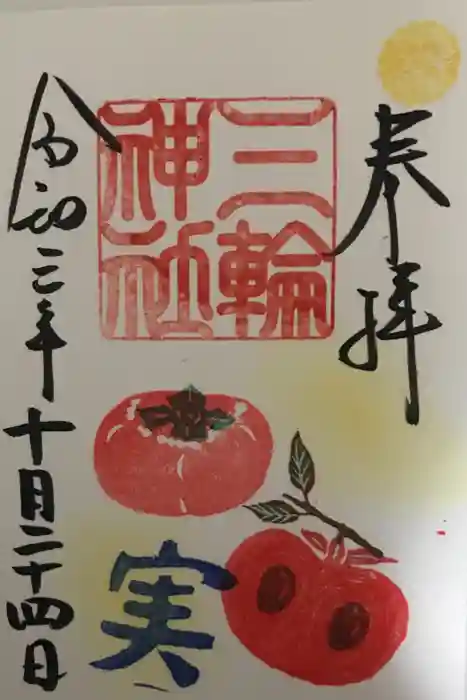 奉拝
三輪
神社
実
令和三年十月二十四日